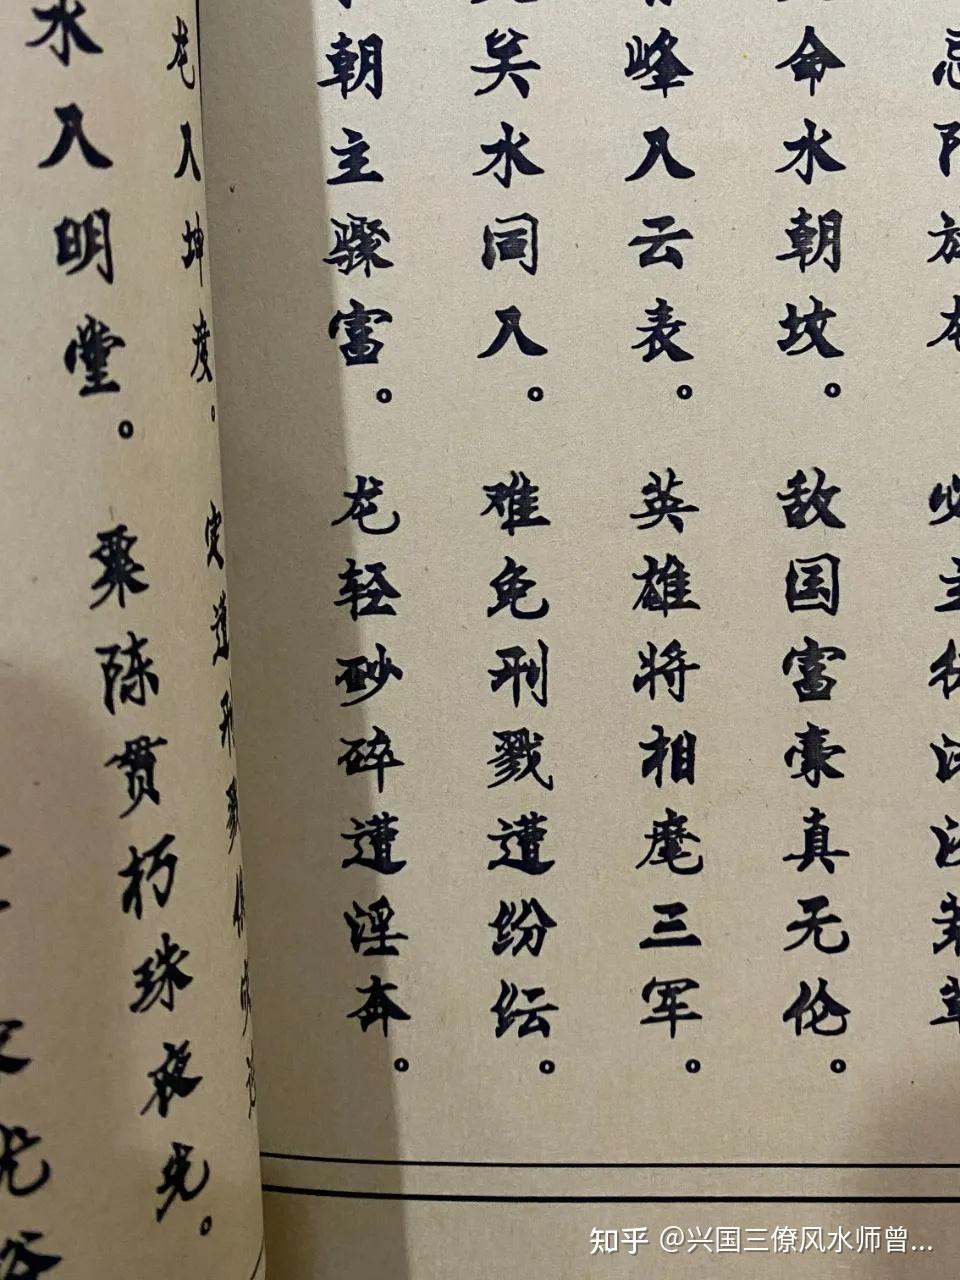 忌
命水朝坟。敌国富豪真无伦。
峰入云表。英雄将相麾三军。
水同入。难免刑戮遭纷纭。
朝主骤富。龙轻砂碎遭淫奔。
龙入坤度。定遭刑戮
水入明堂。粟陈贯朽珠夜光。
知乎 @兴国三僚风水师曾...